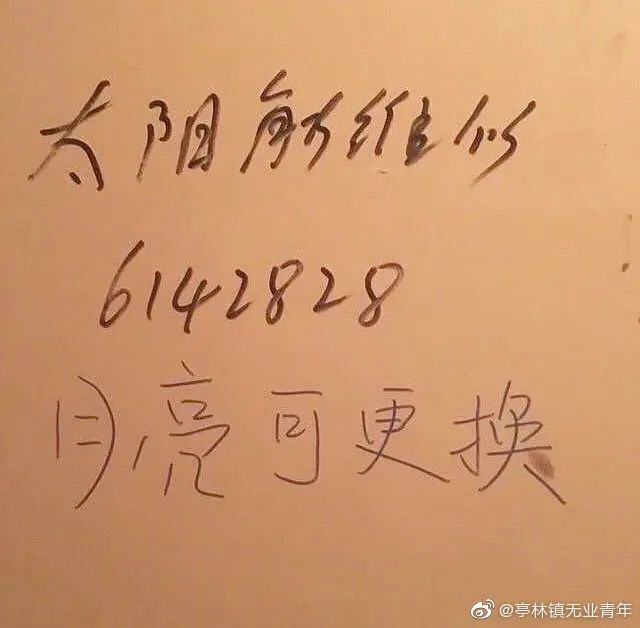 太阳能维修
6142828
月亮可更换
@亭林镇无业青年